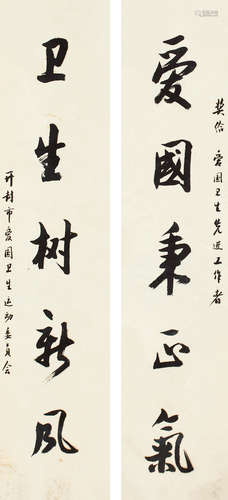 奖给 爱国卫生先进工作者
爱國秉正氣
卫生树新风
开封市爱国卫生运动委员会